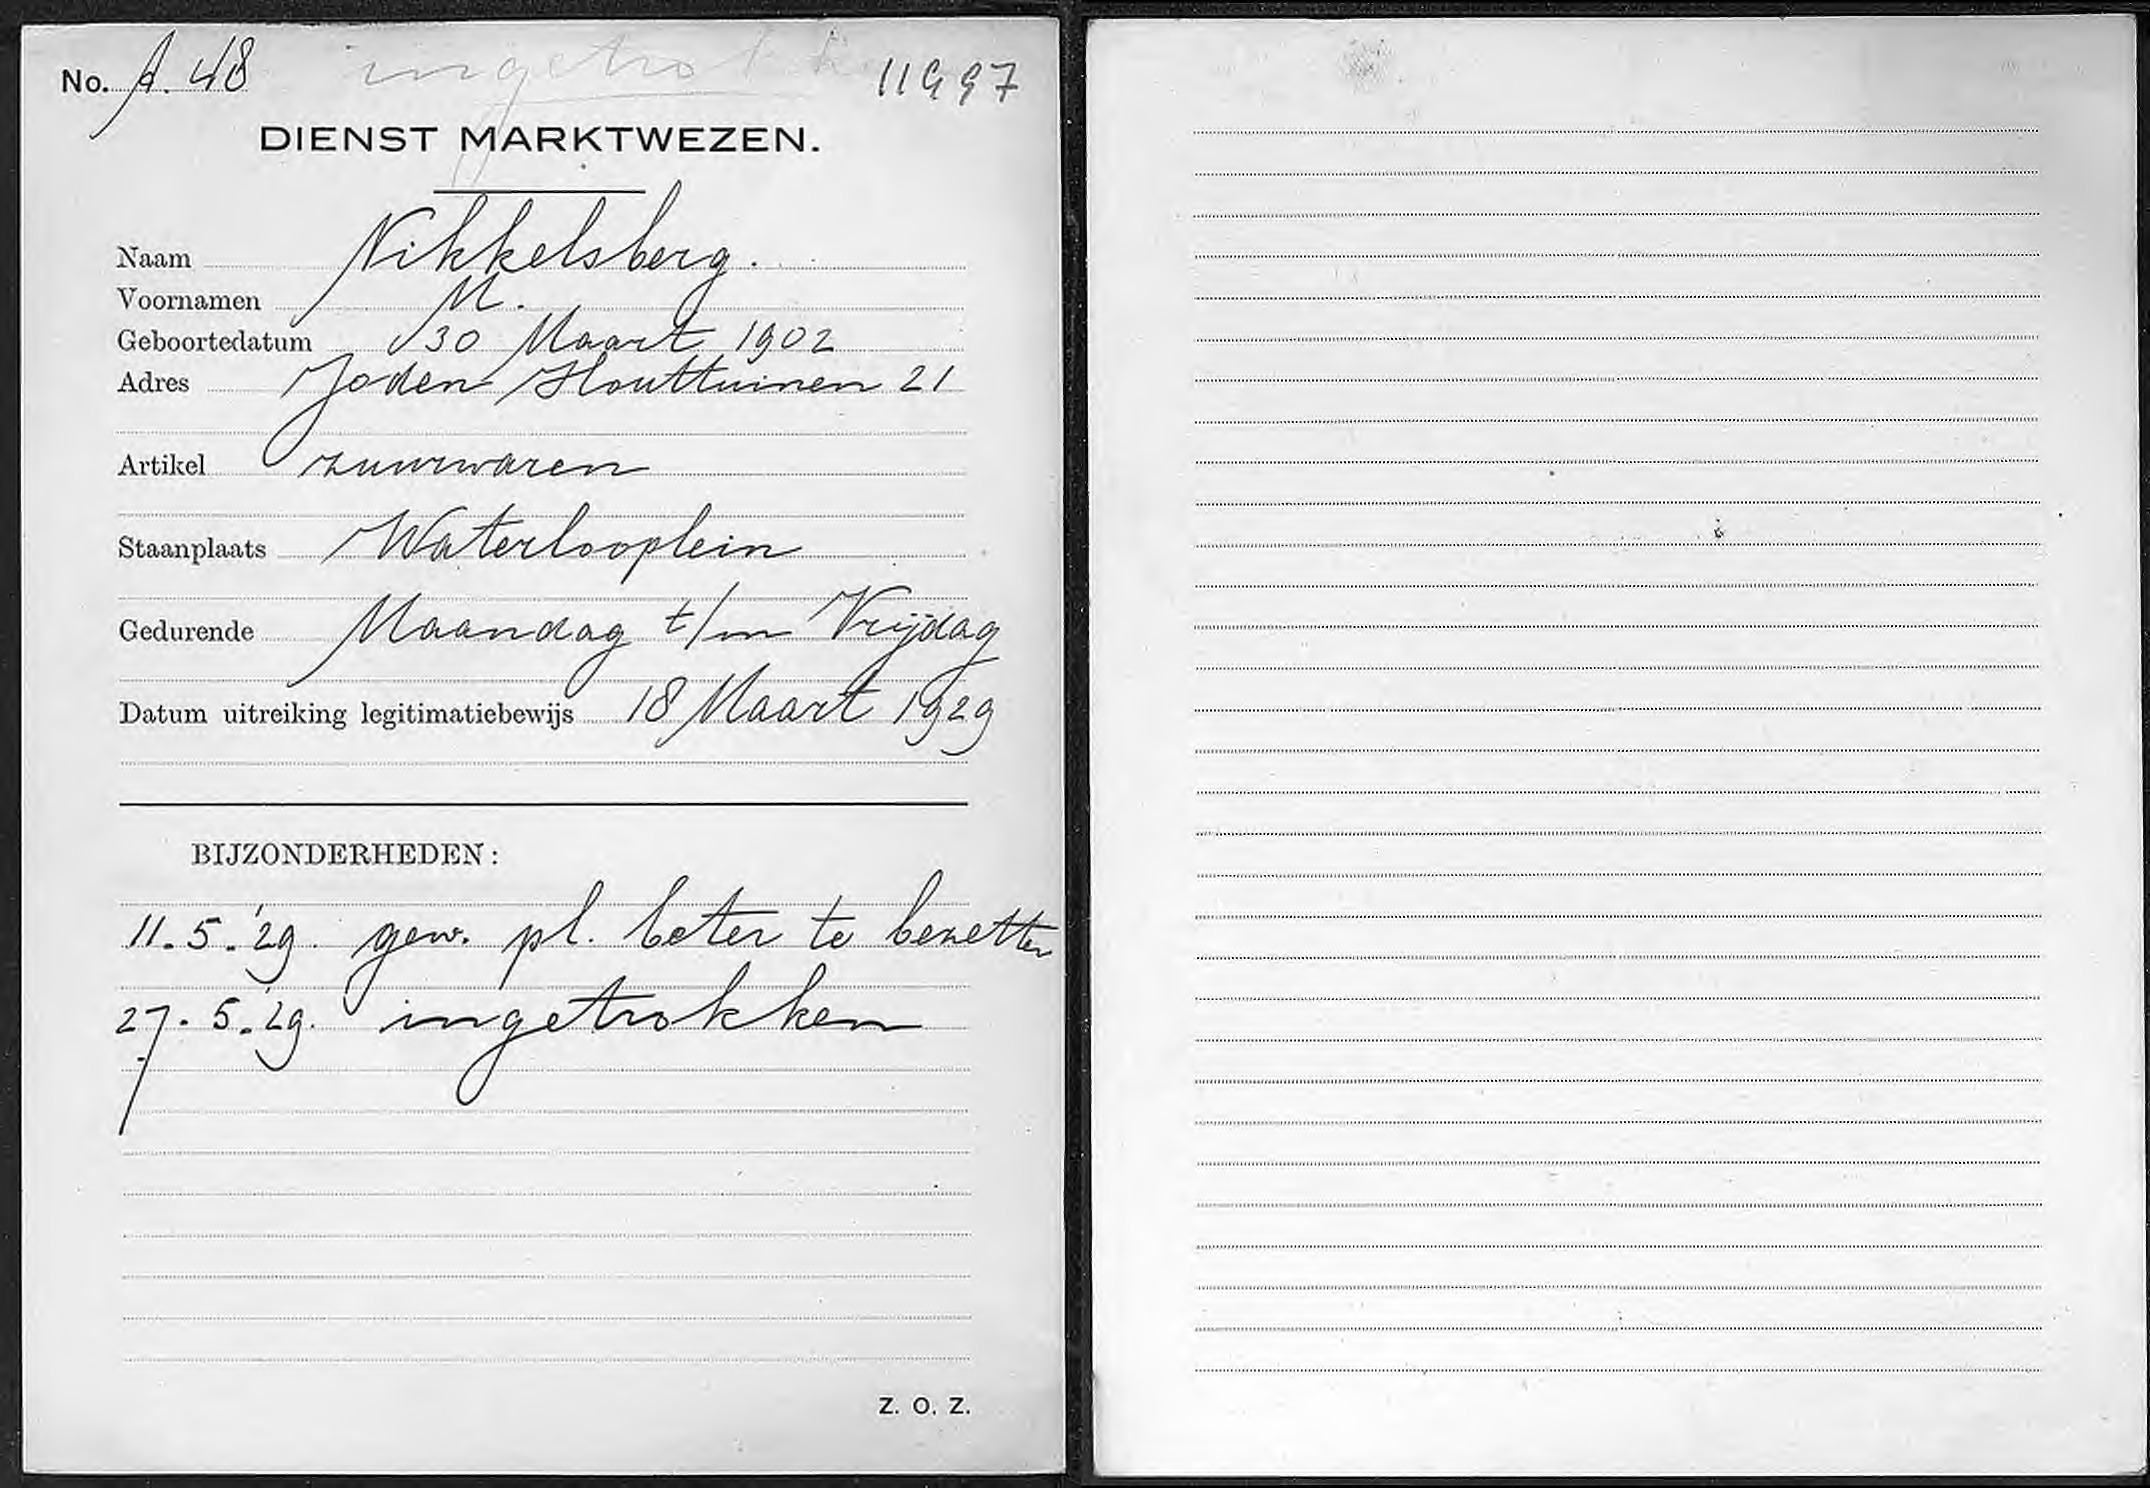 No. A. 48 ingetrokken 11997
DIENST MARKTWEZEN.
Naam Nikkelsberg.
Voornamen M.
Geboortedatum 30 Maart 1902
Adres Joden Houttuinen 21
Artikel zuurwaren
Staanplaats Waterlooplein
Gedurende Maandag t/m Vrijdag
Datum uitreiking legitimatiebewijs 18 Maart 1929
BIJZONDERHEDEN:
11.5.'29. gew. pl. beter te bezetten
27.5.'29. ingetrokken
Z. O. Z.